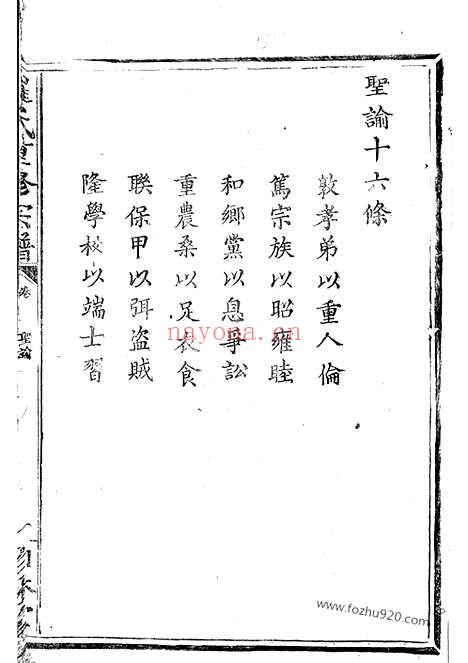 聖諭十六條
敦孝弟以重人倫
篤宗族以昭雍睦
和鄉黨以息爭訟
重農桑以足衣食
聯保甲以弭盜賊
隆學校以端士習
氏重修宗譜
卷
聖諭
nayona.cn
www.fozhu920.com